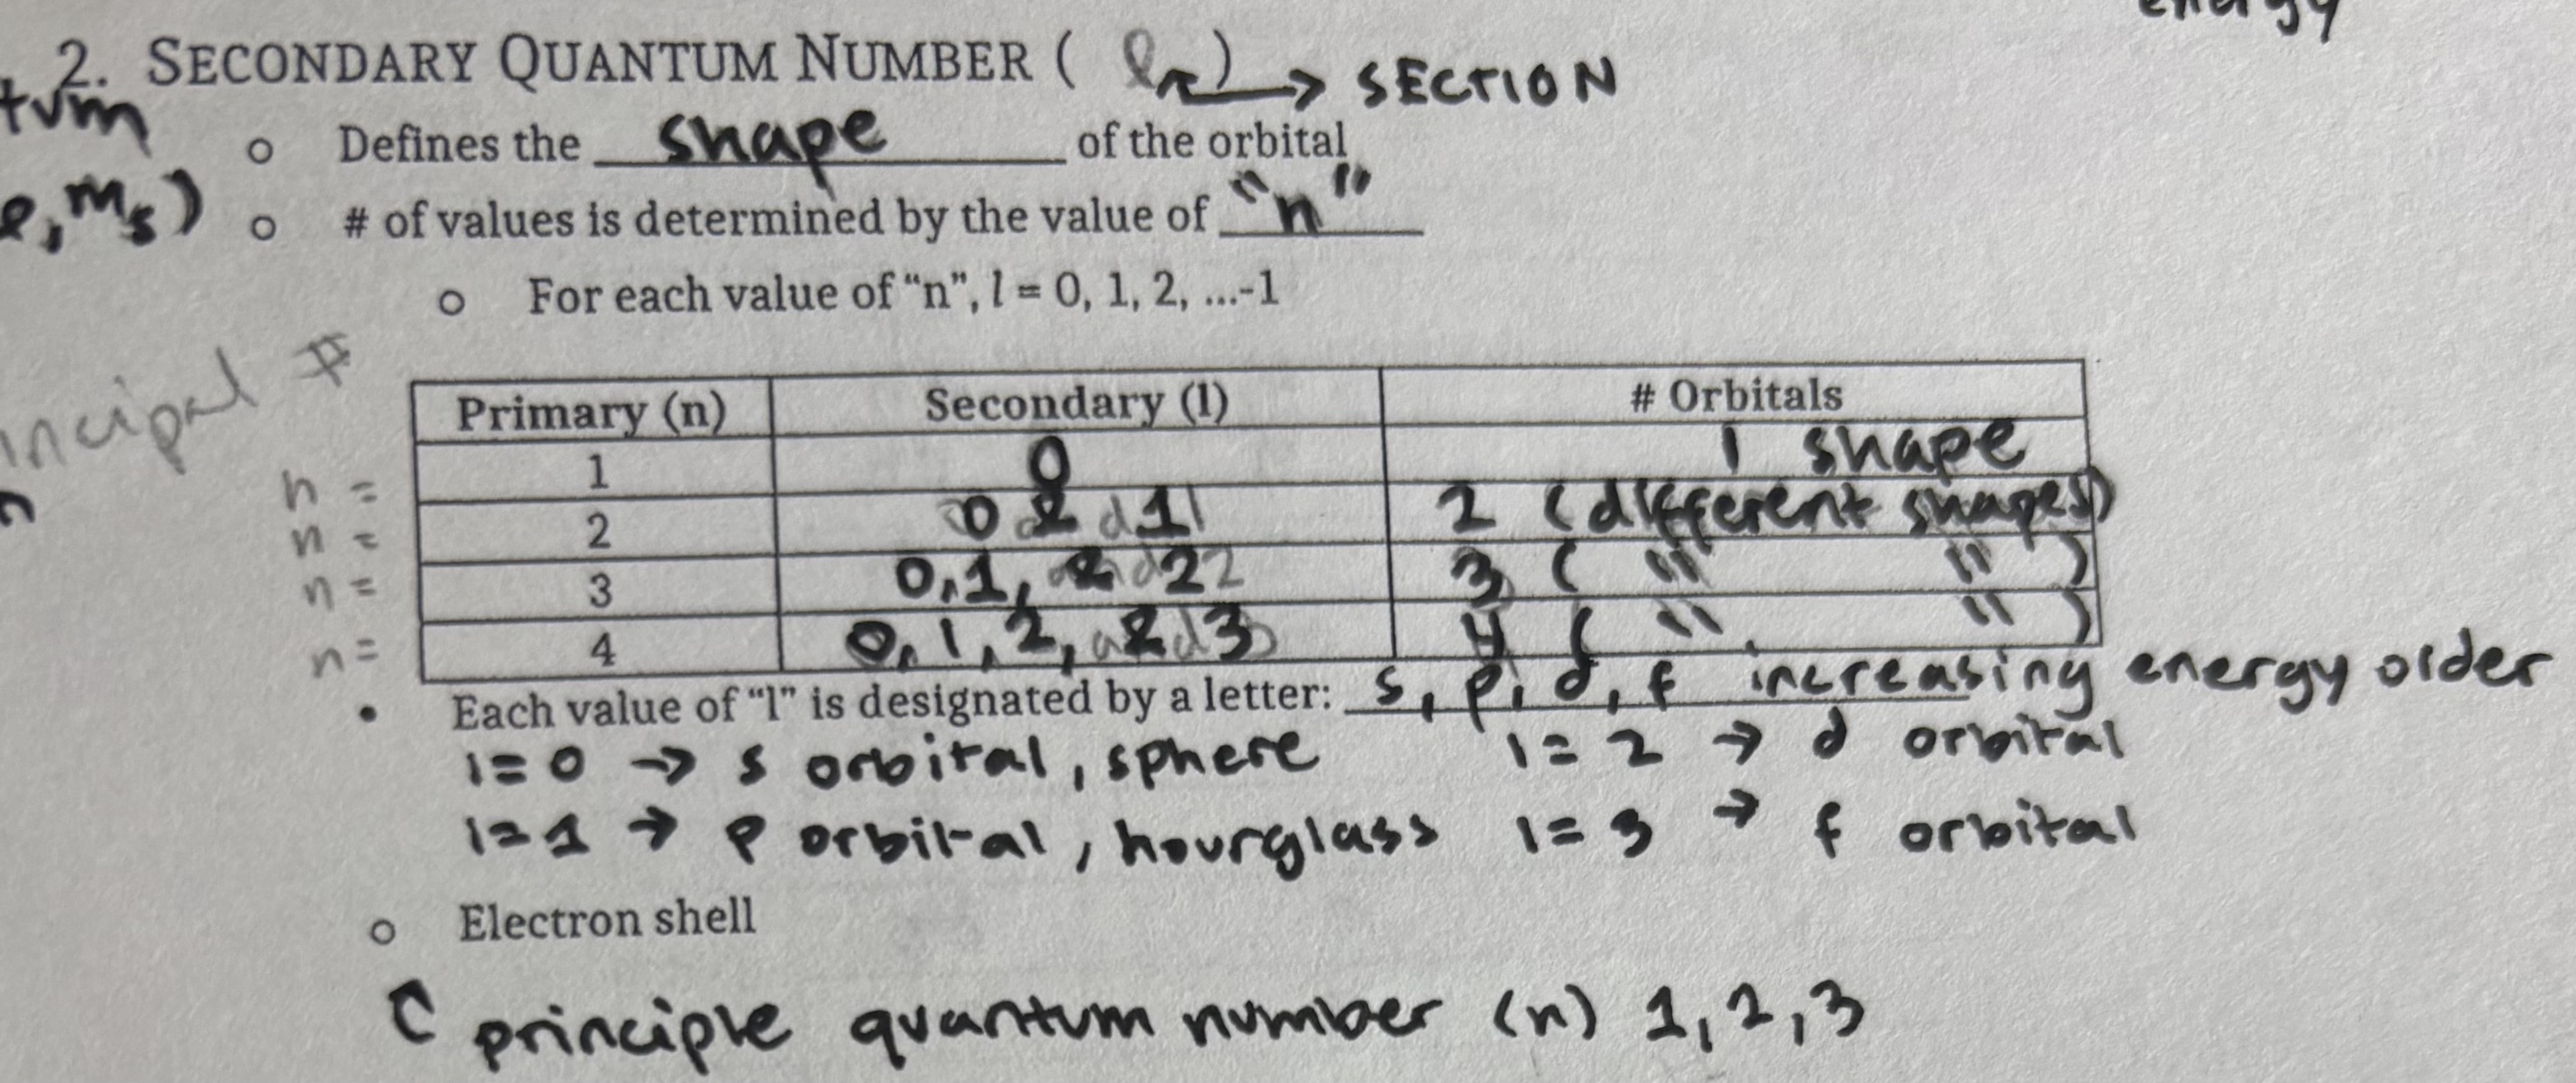 energy
2. SECONDARY QUANTUM NUMBER ( l ) → SECTION
tum
o Defines the shape of the orbital
l, ms)
o # of values is determined by the value of "n"
o For each value of “n”, l = 0, 1, 2, ...-1
#
Primary (n) Secondary (l) # Orbitals
n = 1 0 1 shape
n = 2 0 & 1 2 (different shapes)
n = 3 0,1, & 2 3 ( " " )
n = 4 0, 1, 2, & 3 4 ( " " )
• Each value of “l” is designated by a letter: s, p, d, f increasing energy order
l=0 → s orbital, sphere l=2 → d orbital
l=1 → p orbital, hourglass l=3 → f orbital
o Electron shell
principle quantum number (n) 1,2,3